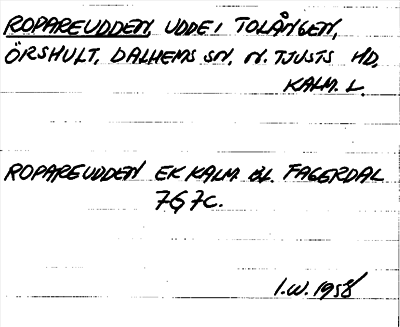 ROPAREUDDEN, UDDE I TOLÅNGEN,
ÖRSHULT, DALHEMS SN, N. TJUSTS HD,
KALM. L.
ROPAREUDDEN EK KALM. BL. FAGERDAL
7G7C.
I.W. 1958